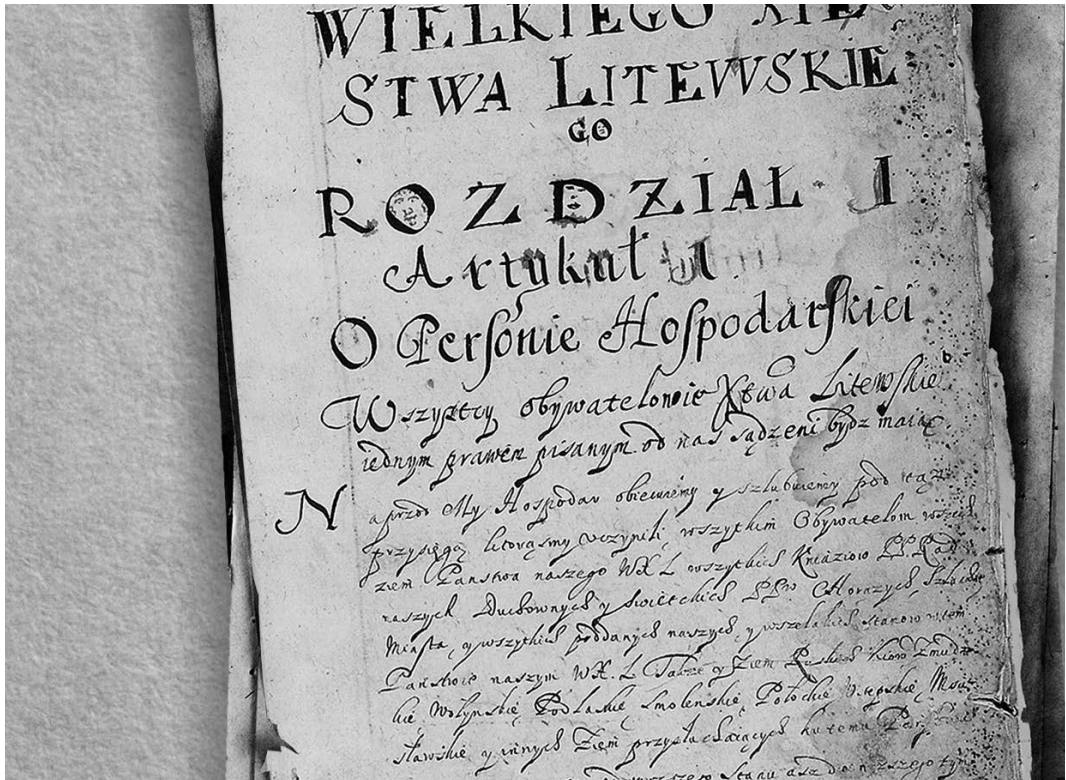 WIELKIEGO XIĘ
STWA LITEWSKIE
GO
ROZDZIAŁ I
Artykuł 1
O Persónie Hospodarſkiei
Wszyſtcy obywatelowie Xtwa Litewſkie°
iednym prawem pisanym od nas sądzeni bydz maią
Naprzod My Hospodar obiecuiemy y szlubuiemy pod tąż
przysięgą, ktorąsmy uczynili, wszytkim Obywatelom wszech
ziem Panstwa naszego WXL wszytkich Kniaziow PP Rad
naszych Duchownych y swietckich PPw Chorązych, Szlachtę
Miasta, y wszytkich poddanych naszych, y wszelakich stanow w tem
Panstwie naszym WX.L Także y Ziem Ruskich kiow Zmudz
kie Wołynskie, Podlaskie Smolenskie, Połockie Witepskie, Msci
sławskie y innych Ziem przysłuchaiących ku temu Pan
Stanu asz do nizszego tym